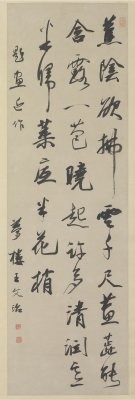 蕉陰欲拂雲千尺蕉蕊能
含露一苞曉起許多清潤意
半歸葉底半花梢
題畫近作
夢樓王文治